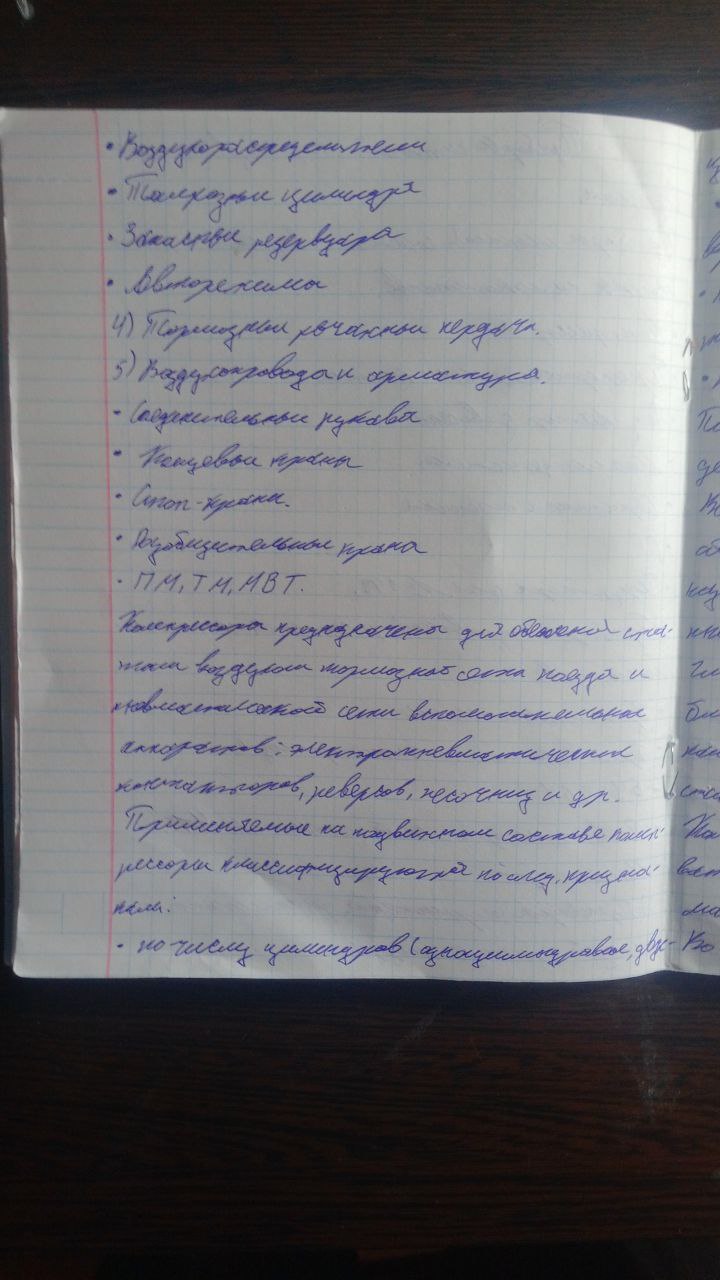 • Воздухораспределители
• Тормозные цилиндры
• Запасные резервуары
• Авторежимы
4) Тормозные рычажные передачи.
5) Воздухопроводы и арматура.
• Соединительные рукава
• Концевые краны
• Стоп-краны.
• Разобщительные краны
• ПМ, ТМ, МВТ.
Компрессоры предназначены для обеспечения сжа-
тым воздухом тормозной сети поезда и
пневматической сети вспомогательных
аппаратов: электропневматических
контакторов, реверсов, песочниц и др.
Применяемые на подвижном составе комп-
рессоры классифицируются по след. призна-
кам:
• по числу цилиндров (одноцилиндровые, двух-